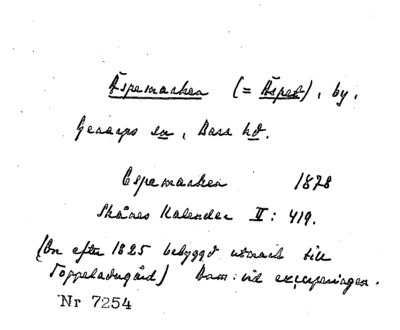 Äspemarken (= Äspet), by.
Genarps sn, Bara hd.
Espemarken 1878
Skånes Kalender II: 419.
(En efter 1825 bebyggd utmark till
Toppeladugård) Dam: vid
Nr 7254